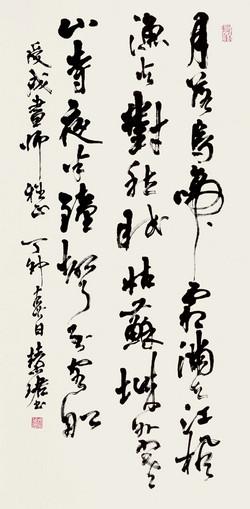 月落烏啼霜滿天江楓
漁火對愁眠姑蘇城外寒
山寺夜半鐘聲到客船
畫師雅正 丁卯 日 書